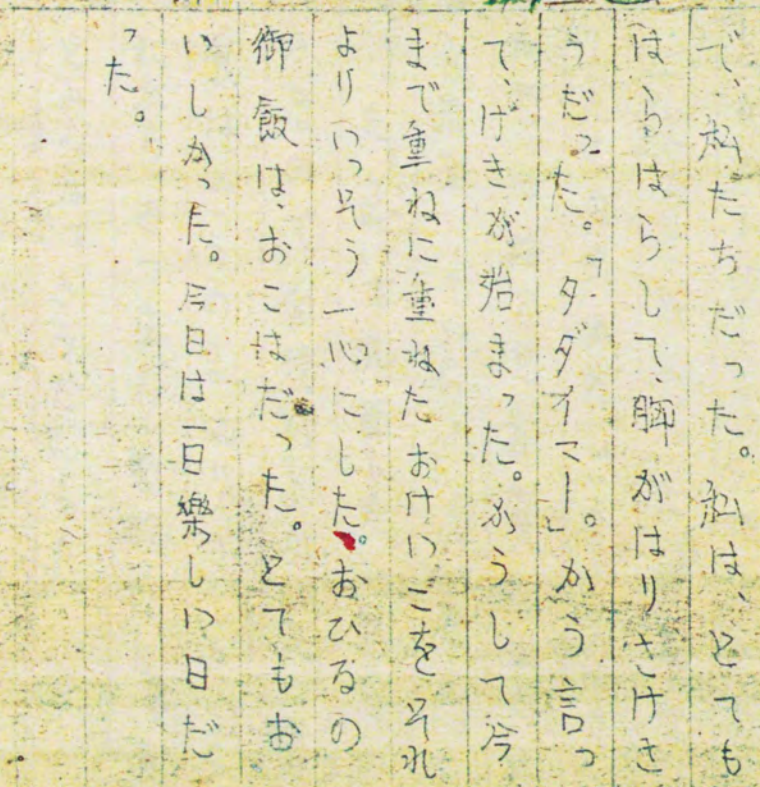 で、私たちだった。私は、とても
はらはらして、胸がはりさけさ
うだった。「タダイマー」。かう言っ
て、げきが始まった。かうして今
まで重ねに重ねたおけいこをそれ
よりいっそう一心にした。おひるの
御飯は、おこはだった。とてもお
いしかった。今日は一日樂しい日だ
った。